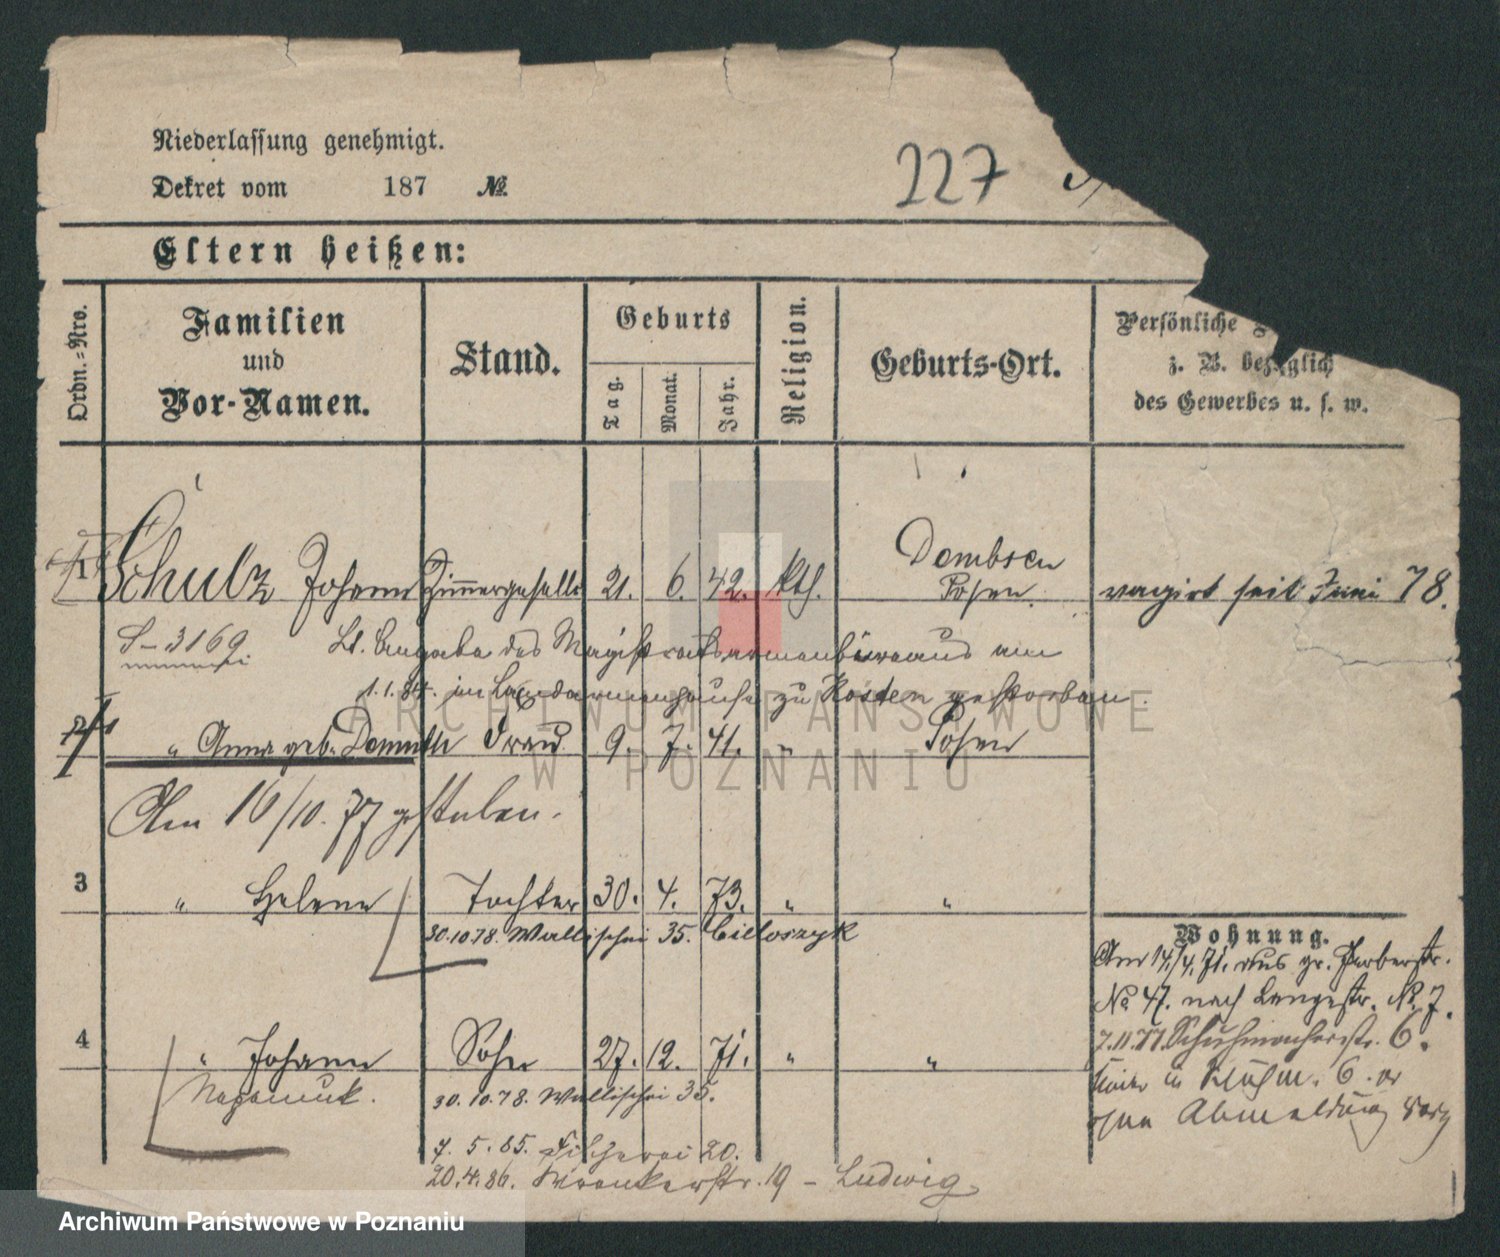 Niederlassung genehmigt.
227
Dekret vom 187 №
Eltern heißen:
Ordn.-Nro.
Familien
und
Vor-Namen.
Stand.
Geburts
Tag.
Monat.
Jahr.
Religion.
Geburts-Ort.
Persönliche
z. B. bezüglich
des Gewerbes u. s. w.
1 Schulz Johann Zimmergeselle 21. 6. 42. kth. Dembsen Posen. vagirt seit Juni 78.
S-3169
Lt. Angabe des Magistratsarmenbüreaus am
1.1.84. im Landarmenhause zu Kosten gestorben.
2 " Anna geb. Demuth Frau 9. 7. 41. " Posen
Am 16/10. 77 gestorben.
3 " Helene Tochter 30. 4. 73. " "
30.10.78. Wallischei 35.
Wohnung.
Am 14./4. 71. aus gr. Gerberstr.
No 47. nach Langestr. No. 7.
7.11.77. Schuhmacherstr. 6.
4 " Johann Sohn 27. 12. 71. " "
Kinder in Schuhm. 6.
Nepomuk.
30.10.78. Wallischei 35.
ohne Abmeldung
7. 5. 85. Fischerei 20.
20.4.86. Wronkerstr. 19 - Ludwig
ARCHIWUM PAŃSTWOWE
W POZNANIU
Archiwum Państwowe w Poznaniu